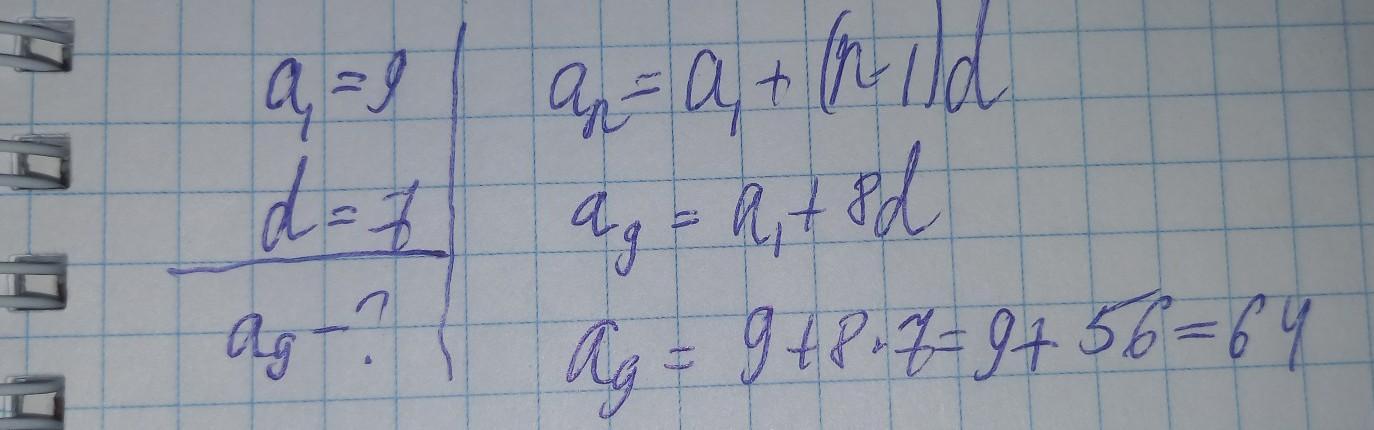 a₁ = 9
d = 7
a₉ - ?
aₙ = a₁ + (n-1)d
a₉ = a₁ + 8d
a₉ = 9 + 8 · 7 = 9 + 56 = 64